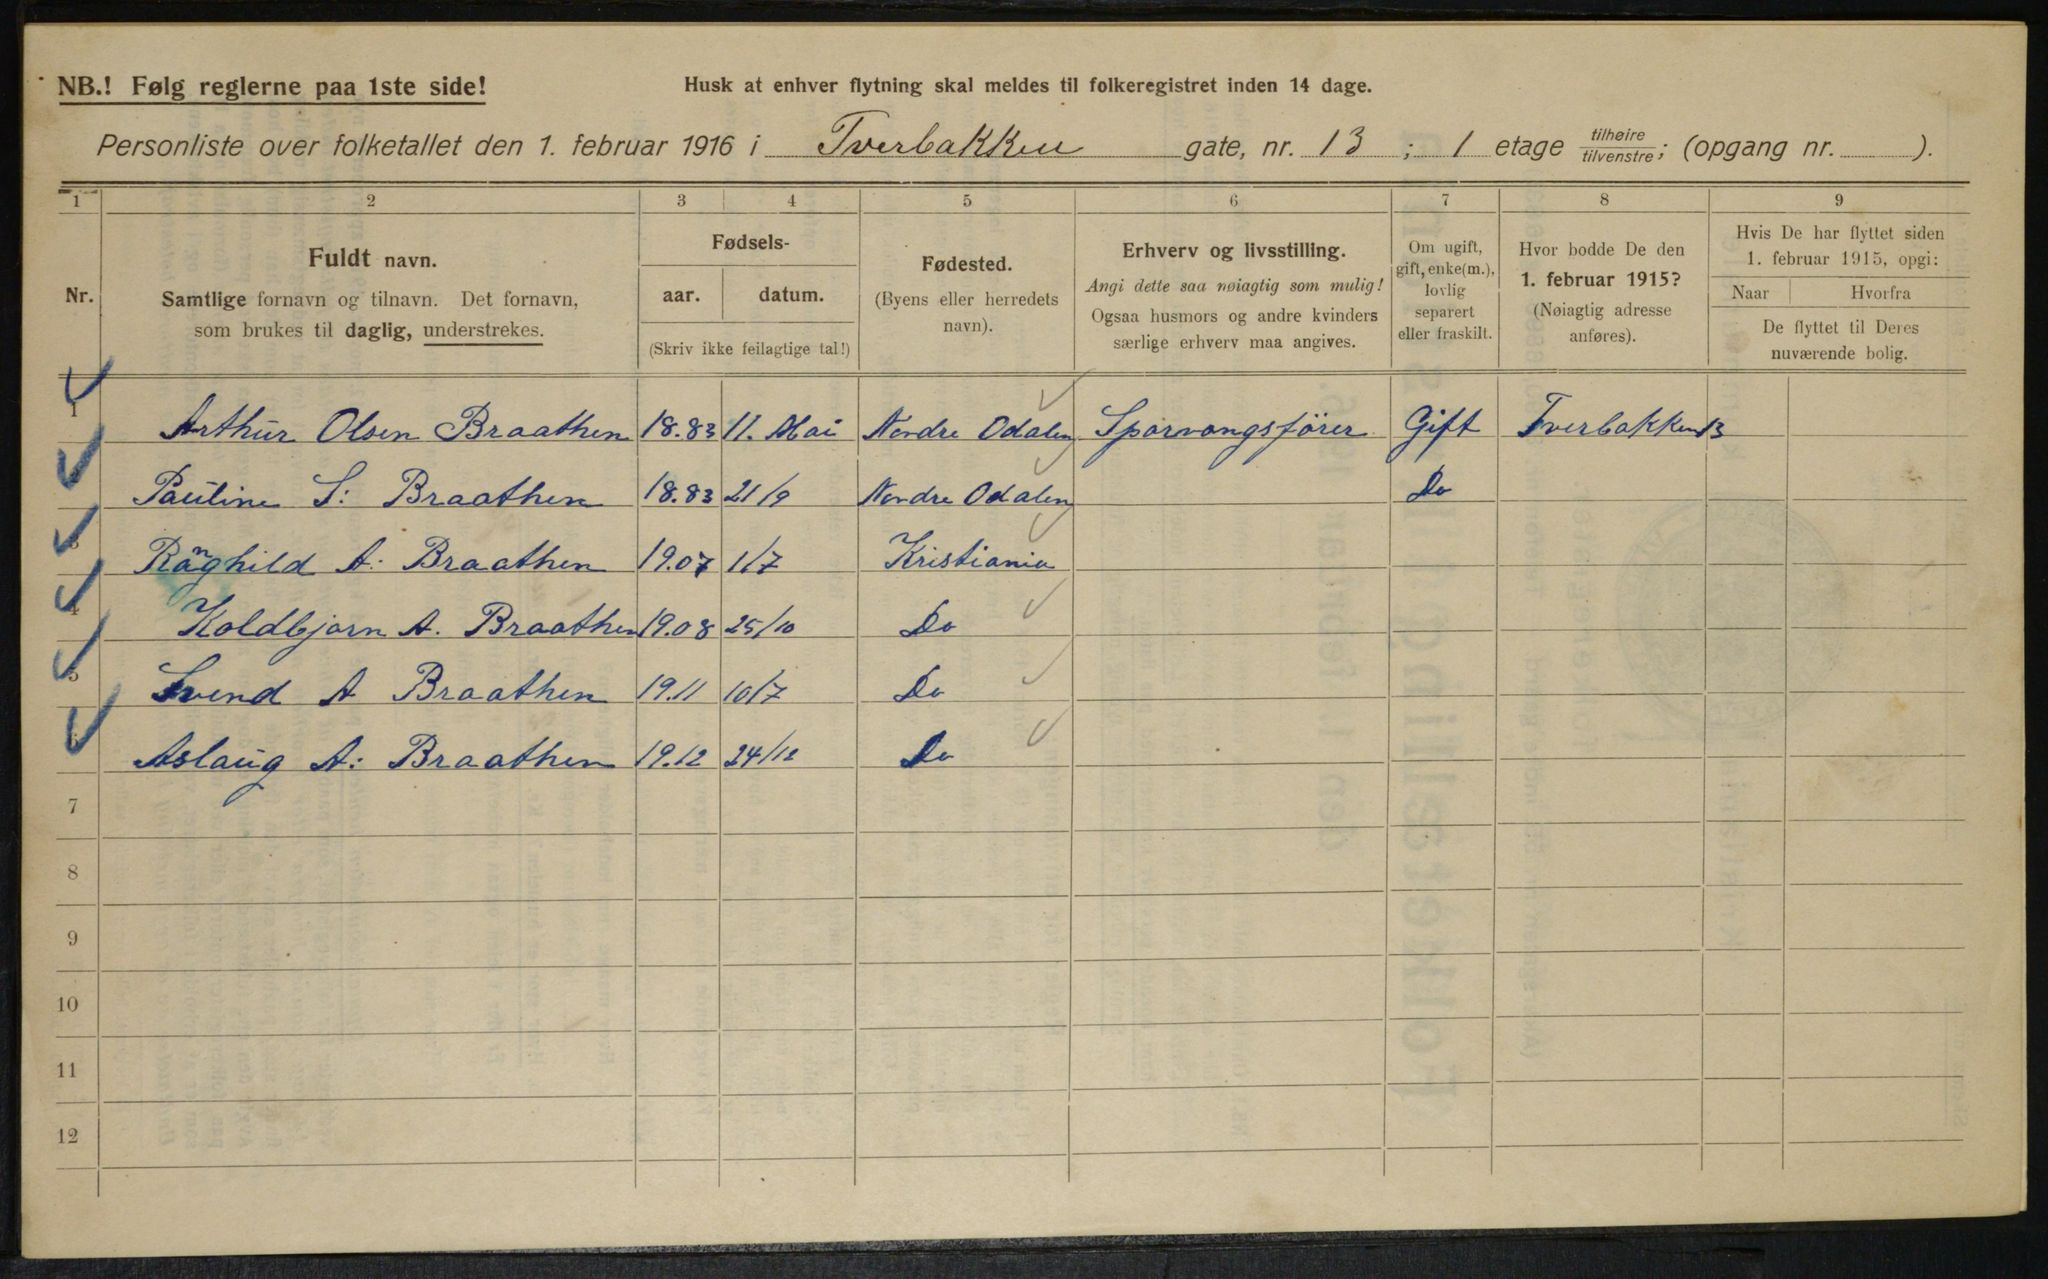 NB.! Følg reglerne paa 1ste side! Husk at enhver flytning skal meldes til folkeregistret inden 14 dage.
Personliste over folketallet den 1. februar 1916 i Tverbakken gate, nr. 13 ; 1 etage tilhøire/tilvenstre; (opgang nr. ).
1 2 3 4 5 6 7 8 9
Nr.
Fuldt navn.
Samtlige fornavn og tilnavn. Det fornavn,
som brukes til daglig, understrekes.
Fødsels-
aar. datum.
(Skriv ikke feilagtige tal!)
Fødested.
(Byens eller herredets
navn).
Erhverv og livsstilling.
Angi dette saa nøiagtig som mulig!
Ogsaa husmors og andre kvinders
særlige erhverv maa angives.
Om ugift,
gift, enke(m.),
lovlig
separert
eller fraskilt.
Hvor bodde De den
1. februar 1915?
(Nøiagtig adresse
anføres).
Hvis De har flyttet siden
1. februar 1915, opgi:
Naar Hvorfra
De flyttet til Deres
nuværende bolig.
1 Arthur Olsen Braathen 18.83 11. Mai Nordre Odalen Sporvongsfører Gift Tverbakken 13
Pauline S: Braathen 18.83 21/9 Nordre Odalen Do
3 Ranghild A: Braathen 19.07 1/7 Kristiania
4 Koldbjørn A. Braathen 19.08 25/10 Do
5 Svend A Braathen 19.11 10/7 Do
6 Aslaug A: Braathen 19.12 24/12 Do
7
8
9
10
11
12